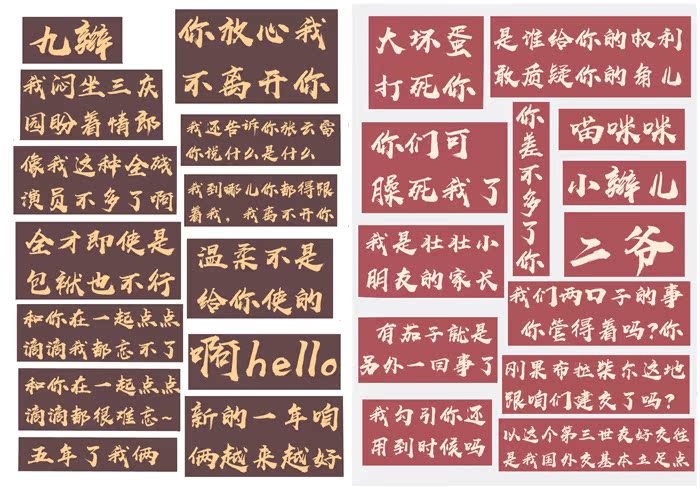 九辫
我闷坐三庆
园盼着情郎
像我这种全碱
演员不多了啊
全才即使是
包袱也不行
和你在一起点点
滴滴我都忘不了
和你在一起点点
滴滴都很难忘~
五年了我俩
你放心我
不离开你
我还告诉你张云雷
你说什么是什么
我到哪儿你都得跟
着我，我离不开你
温柔不是
给你使的
啊hello
新的一年咱
俩越来越好
大坏蛋
打死你
你们可
臊死我了
我是壮壮小
朋友的家长
有茄子就是
另外一回事了
我勾引你还
用到时候吗
是谁给你的权利
敢质疑你的角儿
你差不多了你
喵咪咪
小辫儿
二爷
我们两口子的事
你管得着吗?你
刚果布拉柴尔这地
跟咱们建交了吗?
以这个第三世友好交往
是我国外交基本立足点